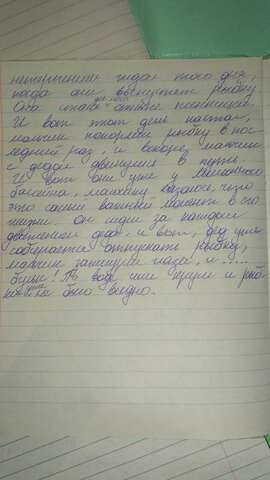 нетерпением ждал того дня,
когда они выпустят рыбку
Она стала для него
И вот этот день настал,
мальчик покормил рыбку в пос-
ледний раз, и вскоре мальчик
с дедом двинулись в путь
И вот они уже у
мальчику казалось, что
это самый важный момент в его
жизни. он следил за каждым
движением деда, и вот, дед уже
собирается отпускать рыбку,
мальчик зажмурил глаза, и .....
бульк! По воде шли круги и рыб-
ки не было видно.